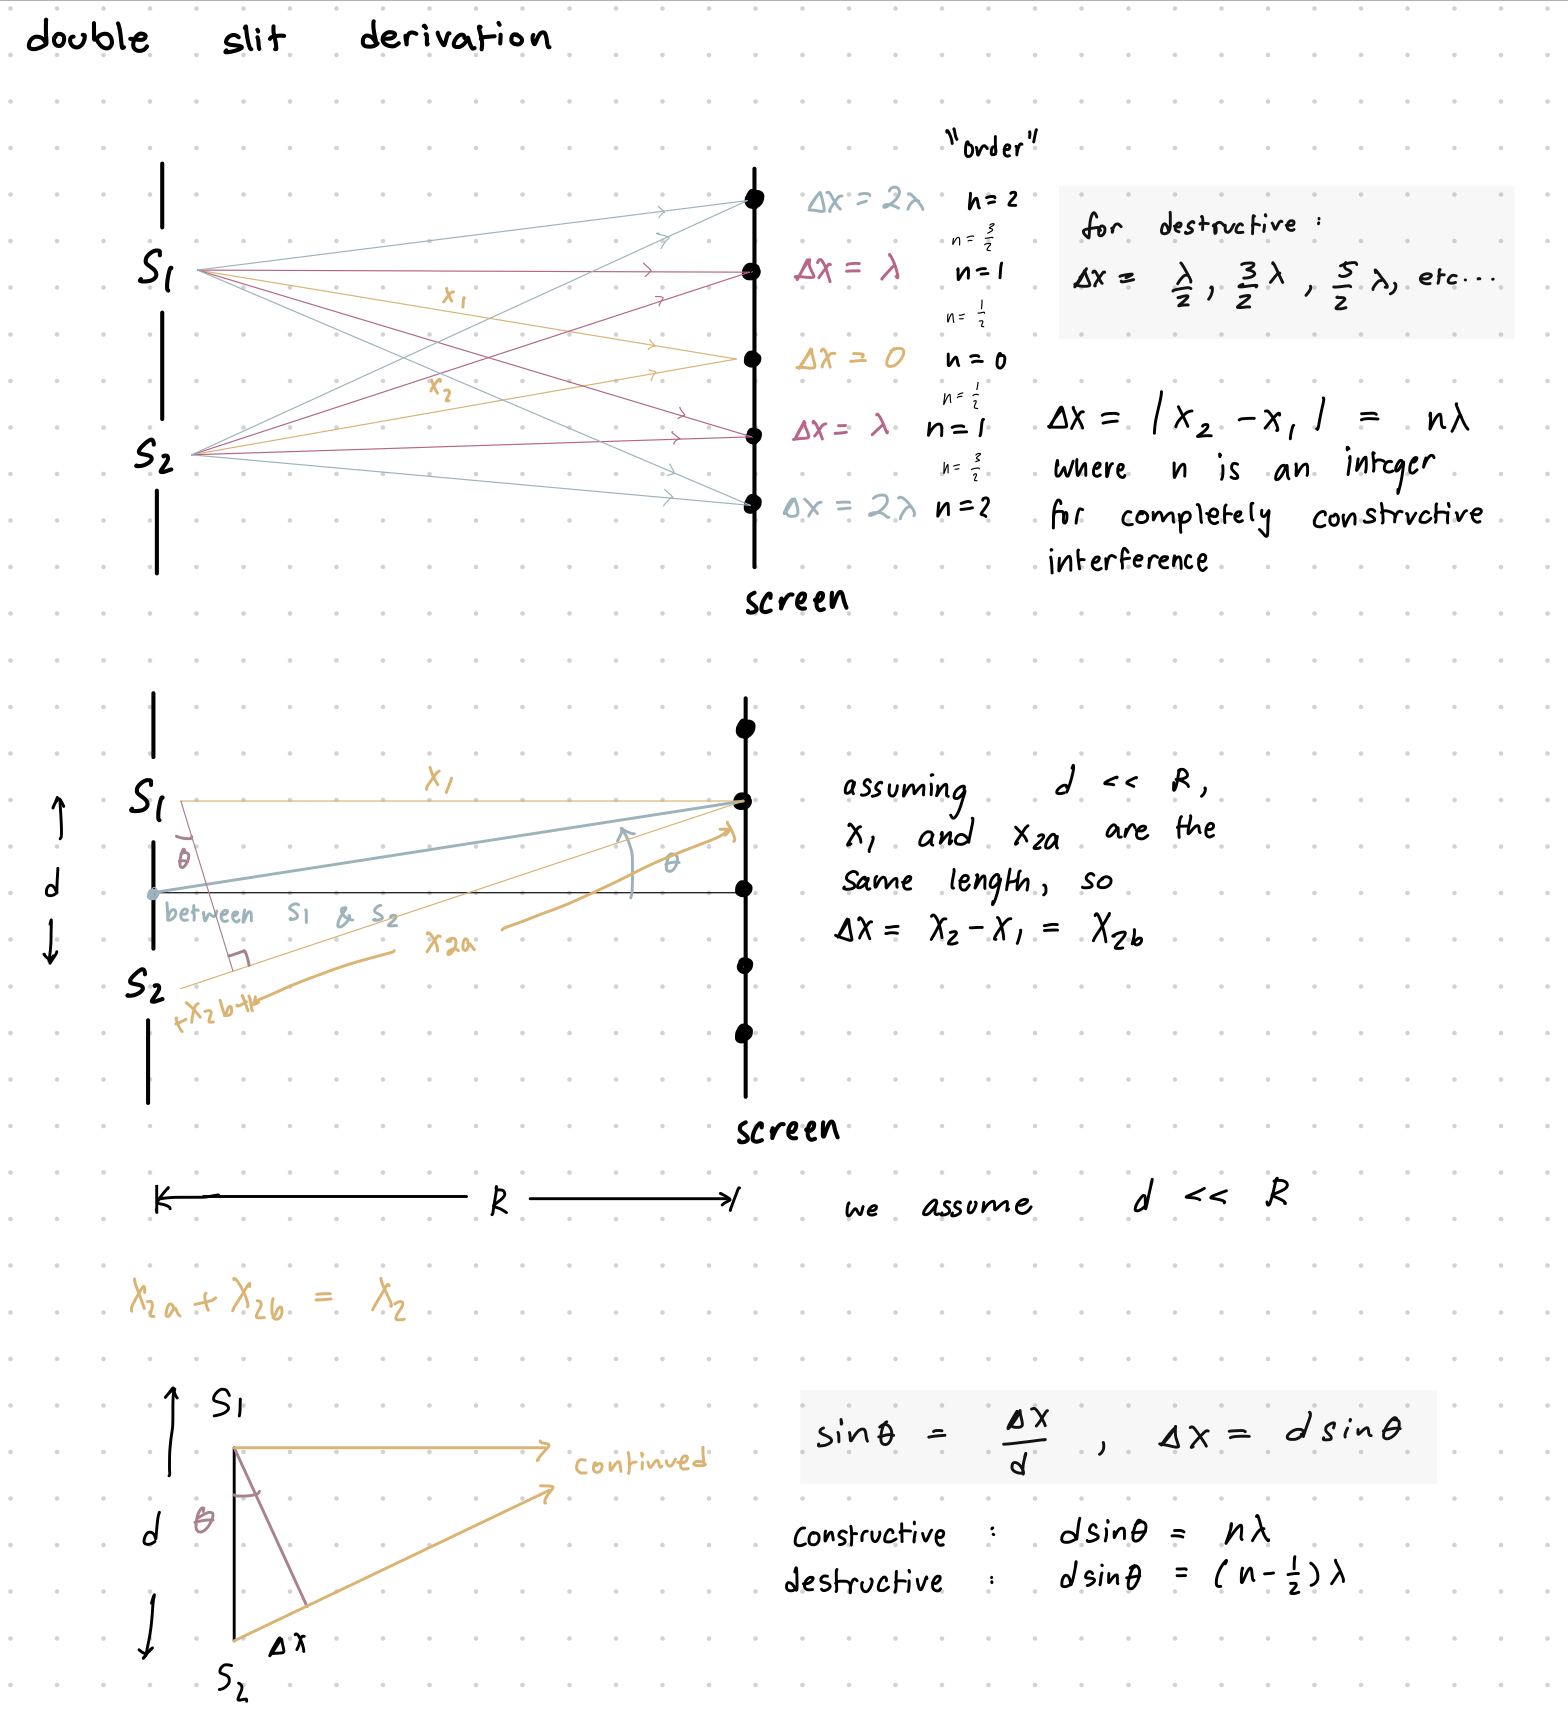 double slit derivation
"order"
S₁
S₂
x₁
x₂
Δx = 2λ n = 2
n = 3/2
Δx = λ n = 1
n = 1/2
Δx = 0 n = 0
n = 1/2
Δx = λ n = 1
n = 3/2
Δx = 2λ n = 2
screen
for destructive :
Δx = λ/2, 3/2 λ, 5/2 λ, etc...
Δx = |x₂ - x₁| = nλ
where n is an integer
for completely constructive
interference
S₁
x₁
θ
d
θ
between S₁ & S₂
x₂a
S₂
x₂b
screen
R
assuming d << R,
x₁ and x₂a are the
same length, so
Δx = x₂ - x₁ = x₂b
we assume d << R
x₂a + x₂b = x₂
S₁
continued
θ
d
Δx
S₂
sinθ = Δx/d , Δx = d sinθ
constructive : dsinθ = nλ
destructive : dsinθ = (n - 1/2) λ